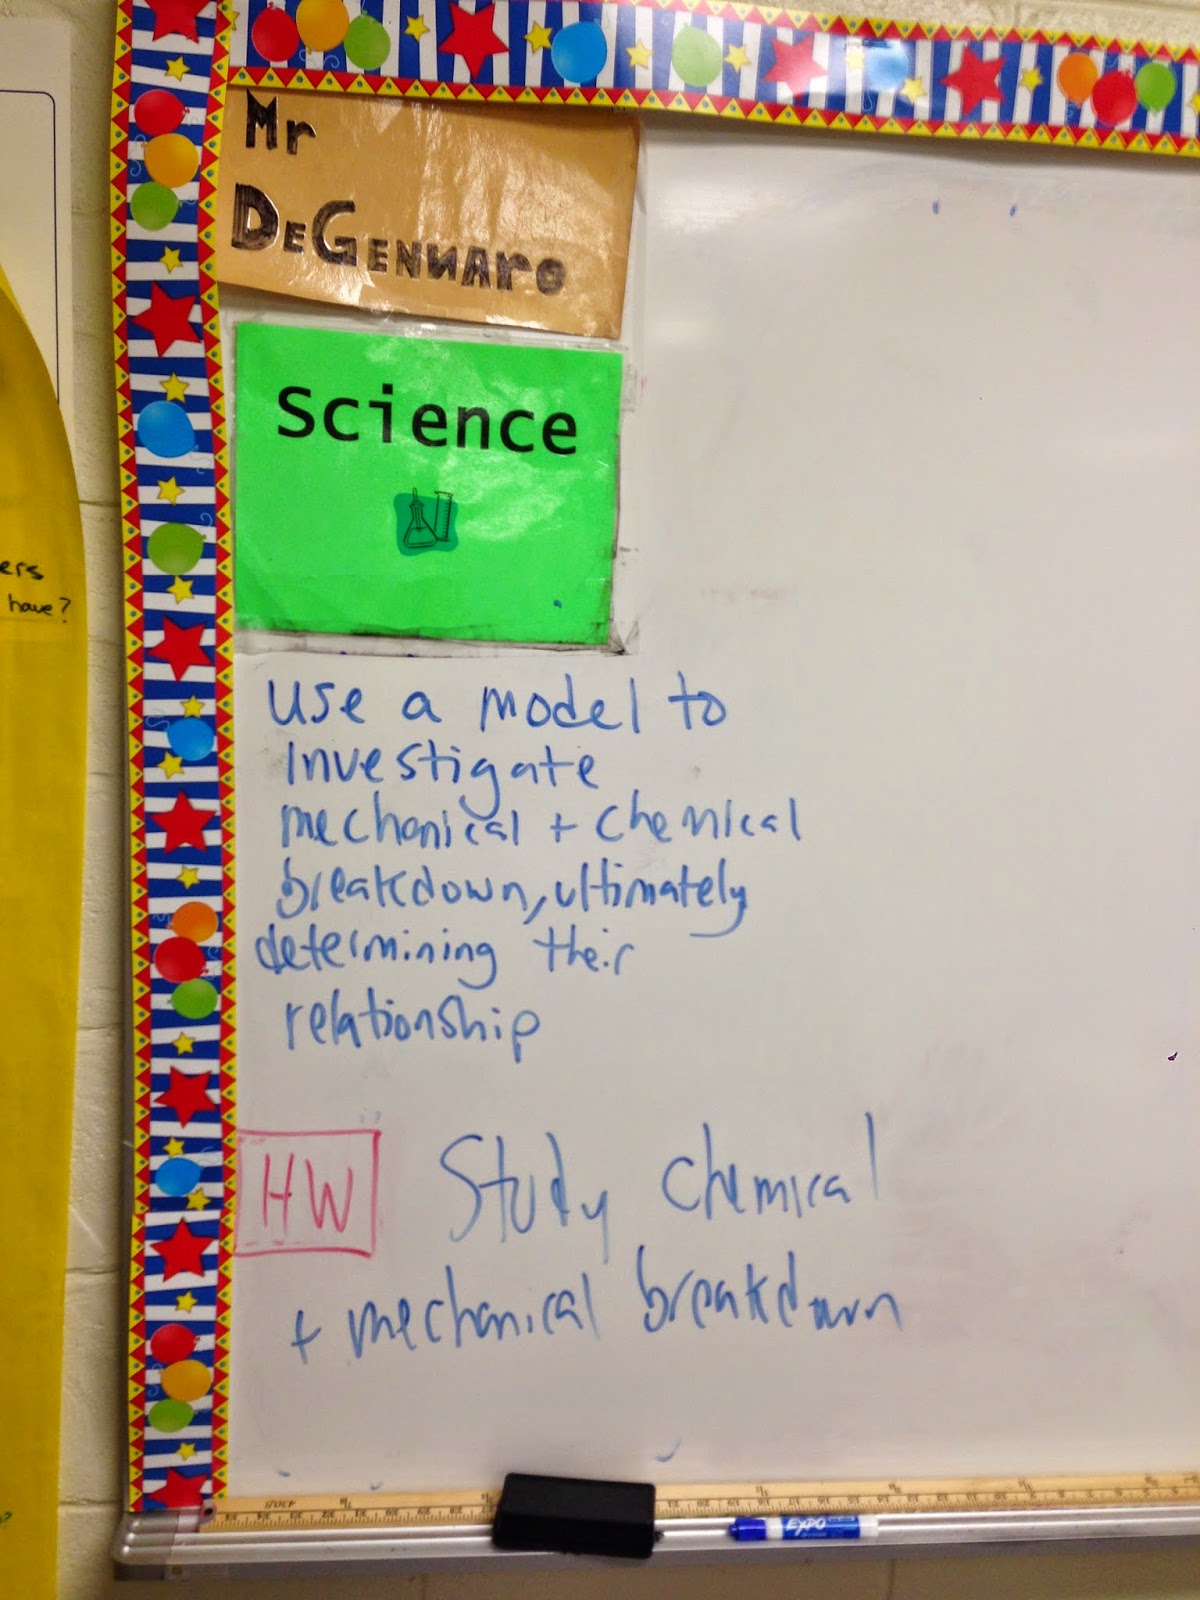 Mr
DeGennaro
Science
ers
have?
Use a model to
investigate
mechanical + chemical
breakdown, ultimately
determining their
relationship
HW
Study chemical
+ mechanical breakdown
EXPO